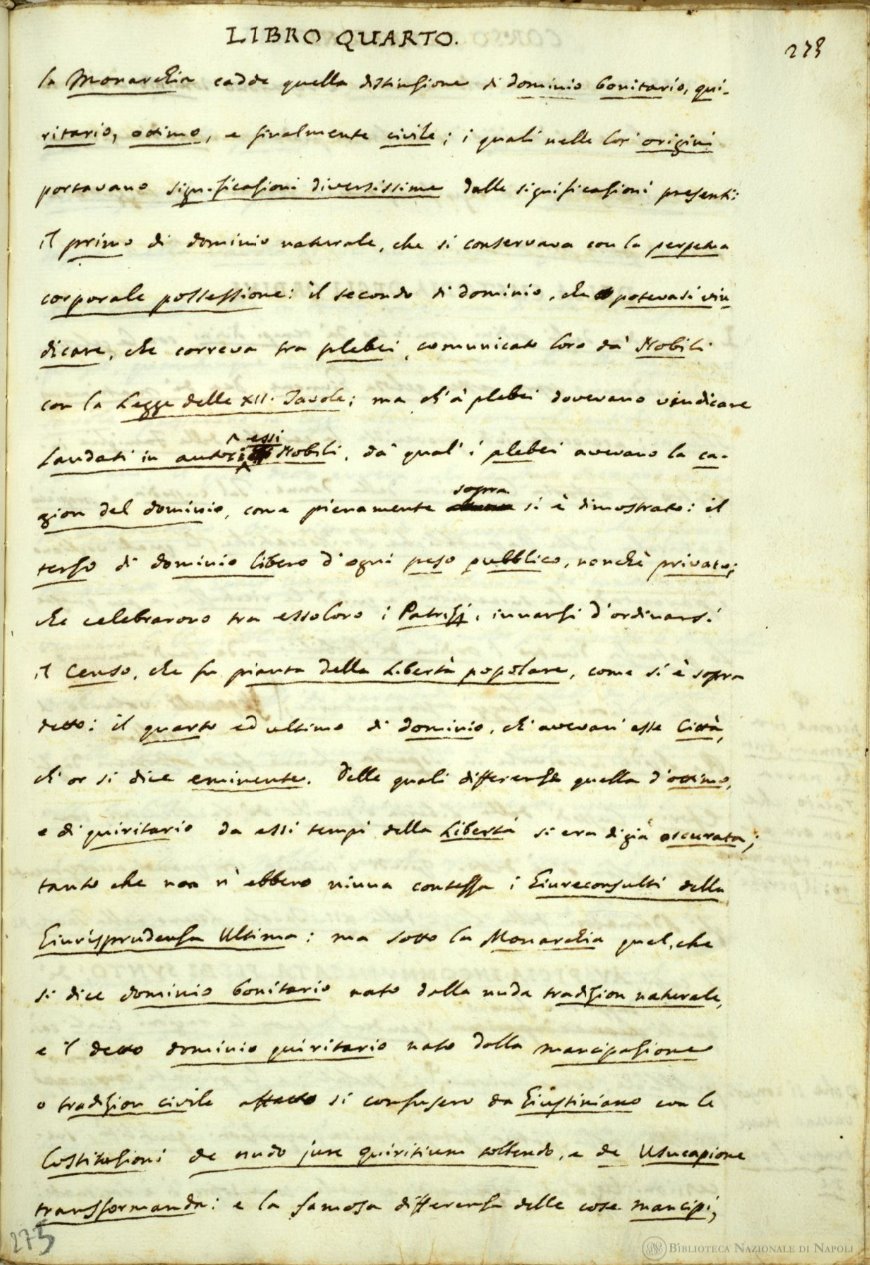 LIBRO QUARTO.
273
la Monarchia cadde quella distinzione di dominio bonitario, qui-
ritario, ottimo, e finalmente civile; i quali nelle lor' origini
portavano significazioni diversissime dalle significazioni presenti:
il primo di dominio naturale, che si conservava con la perpetua
corporale possessione: il secondo di dominio, che potevasi vin
dicare, che correva tra plebei, comunicato loro da' Nobili
con la Legge delle XII. Tavole; ma ch'a' plebei dovevano vindicare
laudati in autori essi Nobili, da' qual' i plebei avevano la ca-
gion del dominio, come pienamente sopra si è dimostrato: il
terzo di dominio libero d'ogni peso pubblico, nonchè privato;
che celebrarono tra essoloro i Patrizj, innanzi d'ordinarsi
il Censo, che fu pianta della Libertà popolare, come si è sopra
detto: il quarto ed ultimo di dominio, ch'avevan' esse Città,
ch'or si dice eminente. Delle quali differenze quella d'ottimo,
e di quiritario da essi tempi della Libertà si era digià oscurata;
tanto che non n'ebbero niuna contezza i Giureconsulti della
Giurisprudenza Ultima: ma sotto la Monarchia quel, che
si dice dominio bonitario nato dalla nuda tradizion naturale,
e 'l detto dominio quiritario nato dalla mancipazione
o tradizion civile affatto si confusero da Giustiniano con le
Costituzioni de nudo jure quiritium tollendo, e de Usucapione
transformanda: e la famosa differenza delle cose mancipi,
275
BIBLIOTECA NAZIONALE DI NAPOLI